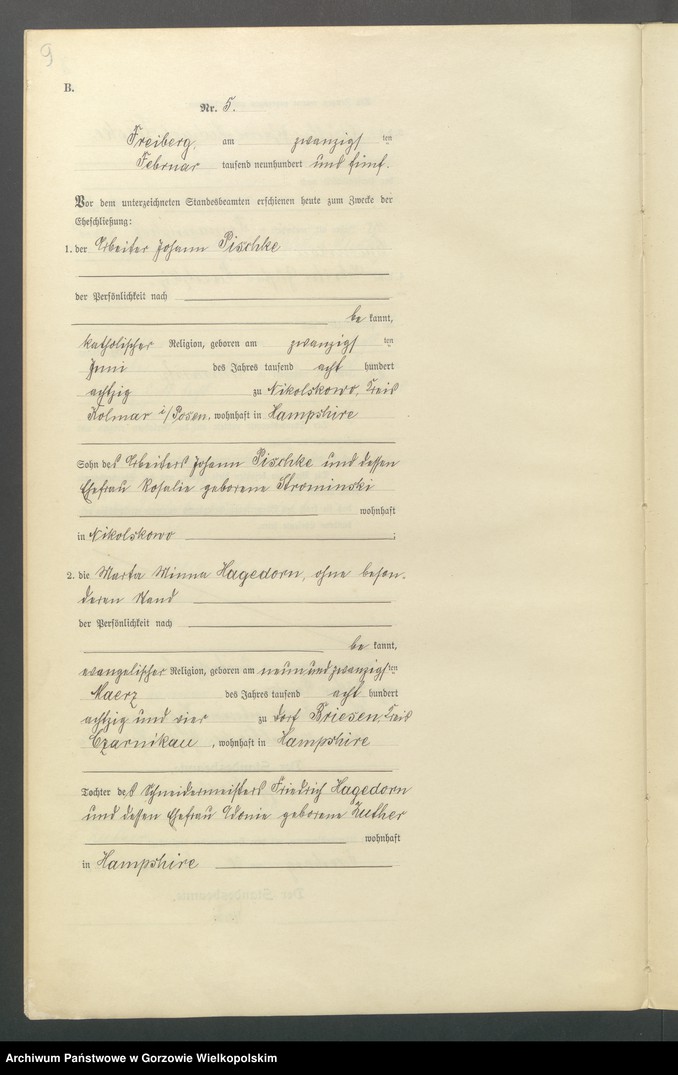 9
B.
Nr. 5.
Freiberg, am zwanzigsten
Februar tausend neunhundert und fünf.
Vor dem unterzeichneten Standesbeamten erschienen heute zum Zwecke der
Eheschließung:
1. der Arbeiter Johann Pischke
der Persönlichkeit nach
be kannt,
katholischer Religion, geboren am zwanzigsten
Juni des Jahres tausend acht hundert
achtzig zu Nikolskowo, Kreis
Kolmar i/Posen, wohnhaft in Hampshire
Sohn des Arbeiters Johann Pischke und dessen
Ehefrau Rosalie geborene Strominski
wohnhaft
in Nikolskowo ;
2. die Marta Minna Hagedorn, ohne beson-
deren Stand
der Persönlichkeit nach
be kannt,
evangelischer Religion, geboren am neunundzwanzigsten
Maerz des Jahres tausend acht hundert
achtzig und vier zu Dorf Briesen, Kreis
Czarnikau, wohnhaft in Hampshire
Tochter des Schneidermeisters Friedrich Hagedorn
und dessen Ehefrau Idonie geborene Zuther
wohnhaft
in Hampshire
Archiwum Państwowe w Gorzowie Wielkopolskim